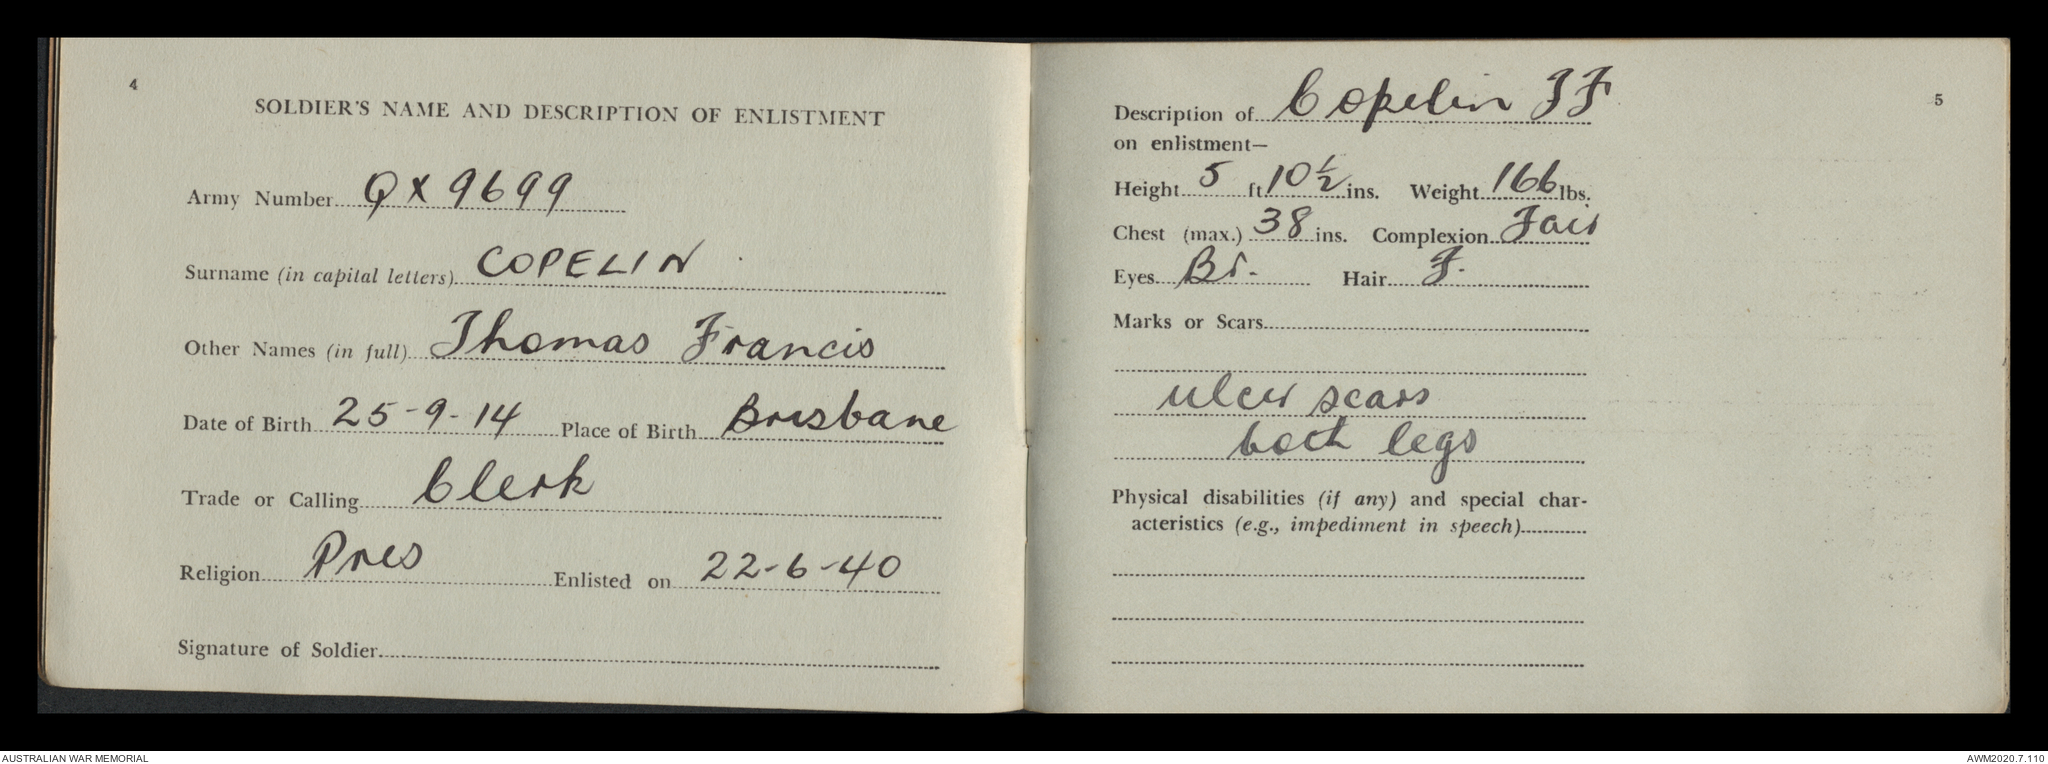 4
SOLDIER'S NAME AND DESCRIPTION OF ENLISTMENT
Army Number QX 9699
Surname (in capital letters) COPELIN
Other Names (in full) Thomas Francis
Date of Birth 25-9-14 Place of Birth Brisbane
Trade or Calling Clerk
Religion Pres Enlisted on 22-6-40
Signature of Soldier
5
Description of Copelin T F
on enlistment—
Height 5 ft 10 ½ ins. Weight 166 lbs.
Chest (max.) 38 ins. Complexion Fair
Eyes Br. Hair F.
Marks or Scars
ulcer scars
both legs
Physical disabilities (if any) and special char-
acteristics (e.g., impediment in speech)
AUSTRALIAN WAR MEMORIAL
AWM2020.7.110